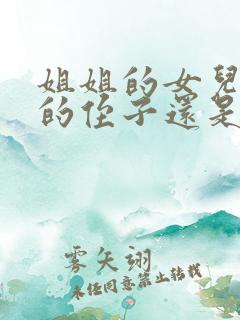 姐姐的女兒
的侄子還是
雾矢翊
未经同意禁止转载